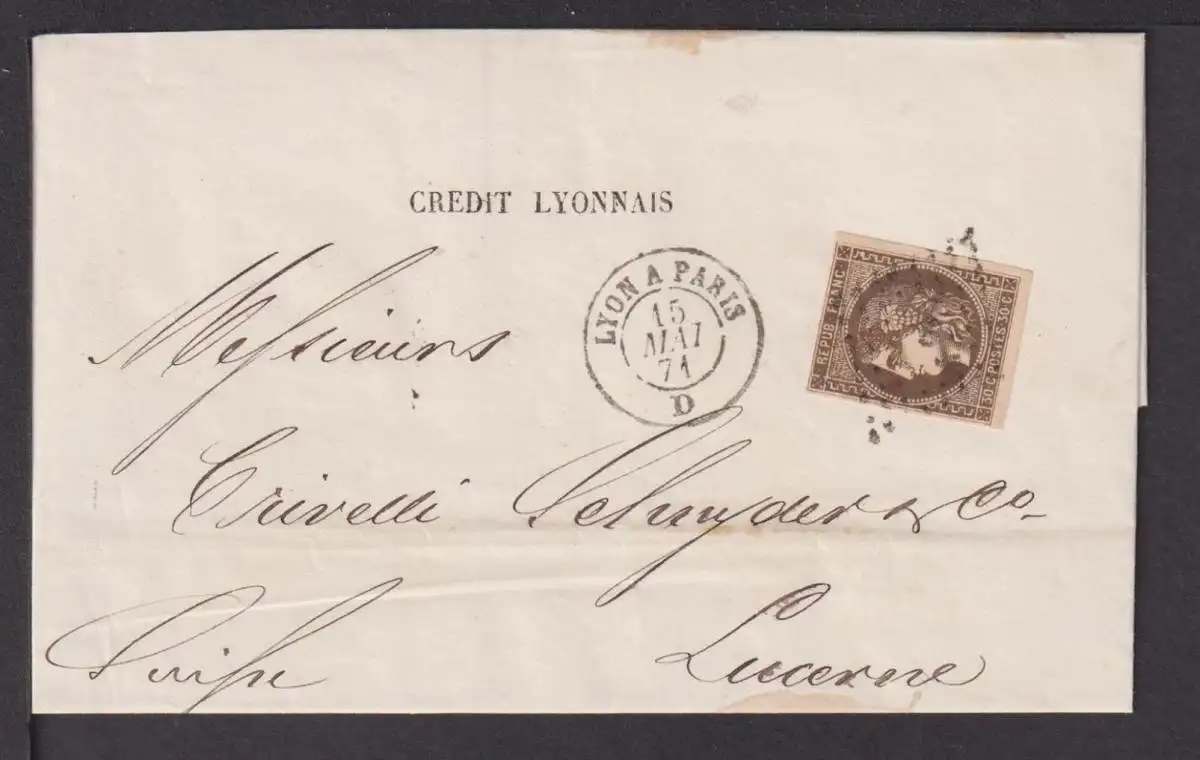 CREDIT LYONNAIS
LYON A PARIS
15
MAI
71
D
REPUB FRANC
30 C POSTES 30 C
Messieurs
Crivelli Schnyder & Co
Suisse
Lucerne